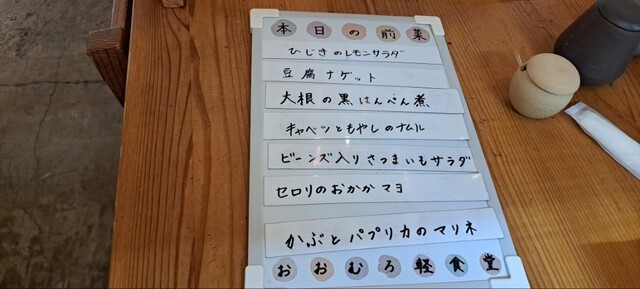 本日の前菜
ひじきのレモンサラダ
豆腐ナゲット
大根の黒はんぺん煮
キャベツともやしのナムル
ビーンズ入りさつまいもサラダ
セロリのおかかマヨ
かぶとパプリカのマリネ
おおむろ軽食堂